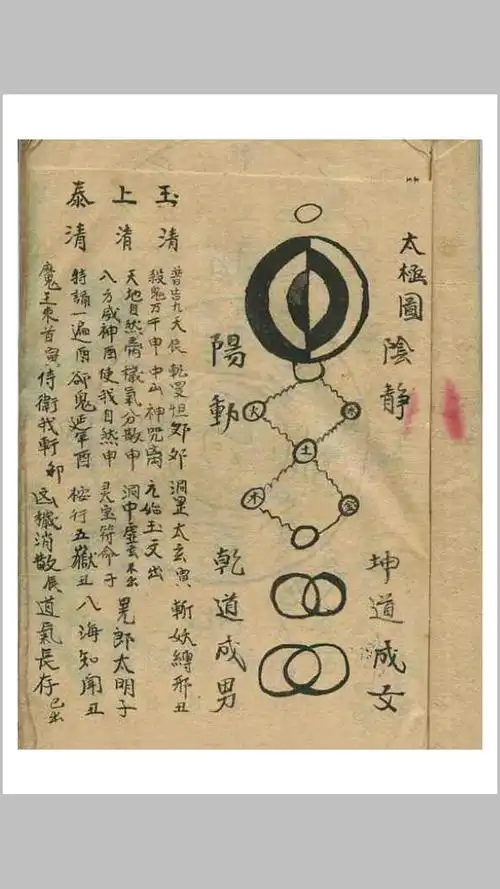 太極圖
陰靜
坤道成女
火
水
土
木
金
陽動
乾道成男
玉清
上清
泰清
普告九天 乾曼怛 洞罡太玄寅 斬妖縛邪丑
殺鬼万千申 中山神咒 元始玉文出
天地自然 穢氣分散申 洞中虛玄未出 晃郎太明子
八方威神酉 使我自然申 灵宝符命子
特誦一遍酉 卻鬼延年酉 桉行五嶽丑 八海知聞丑
魔王束首寅 侍衛我軒卯 凶穢消散辰 道氣長存已出